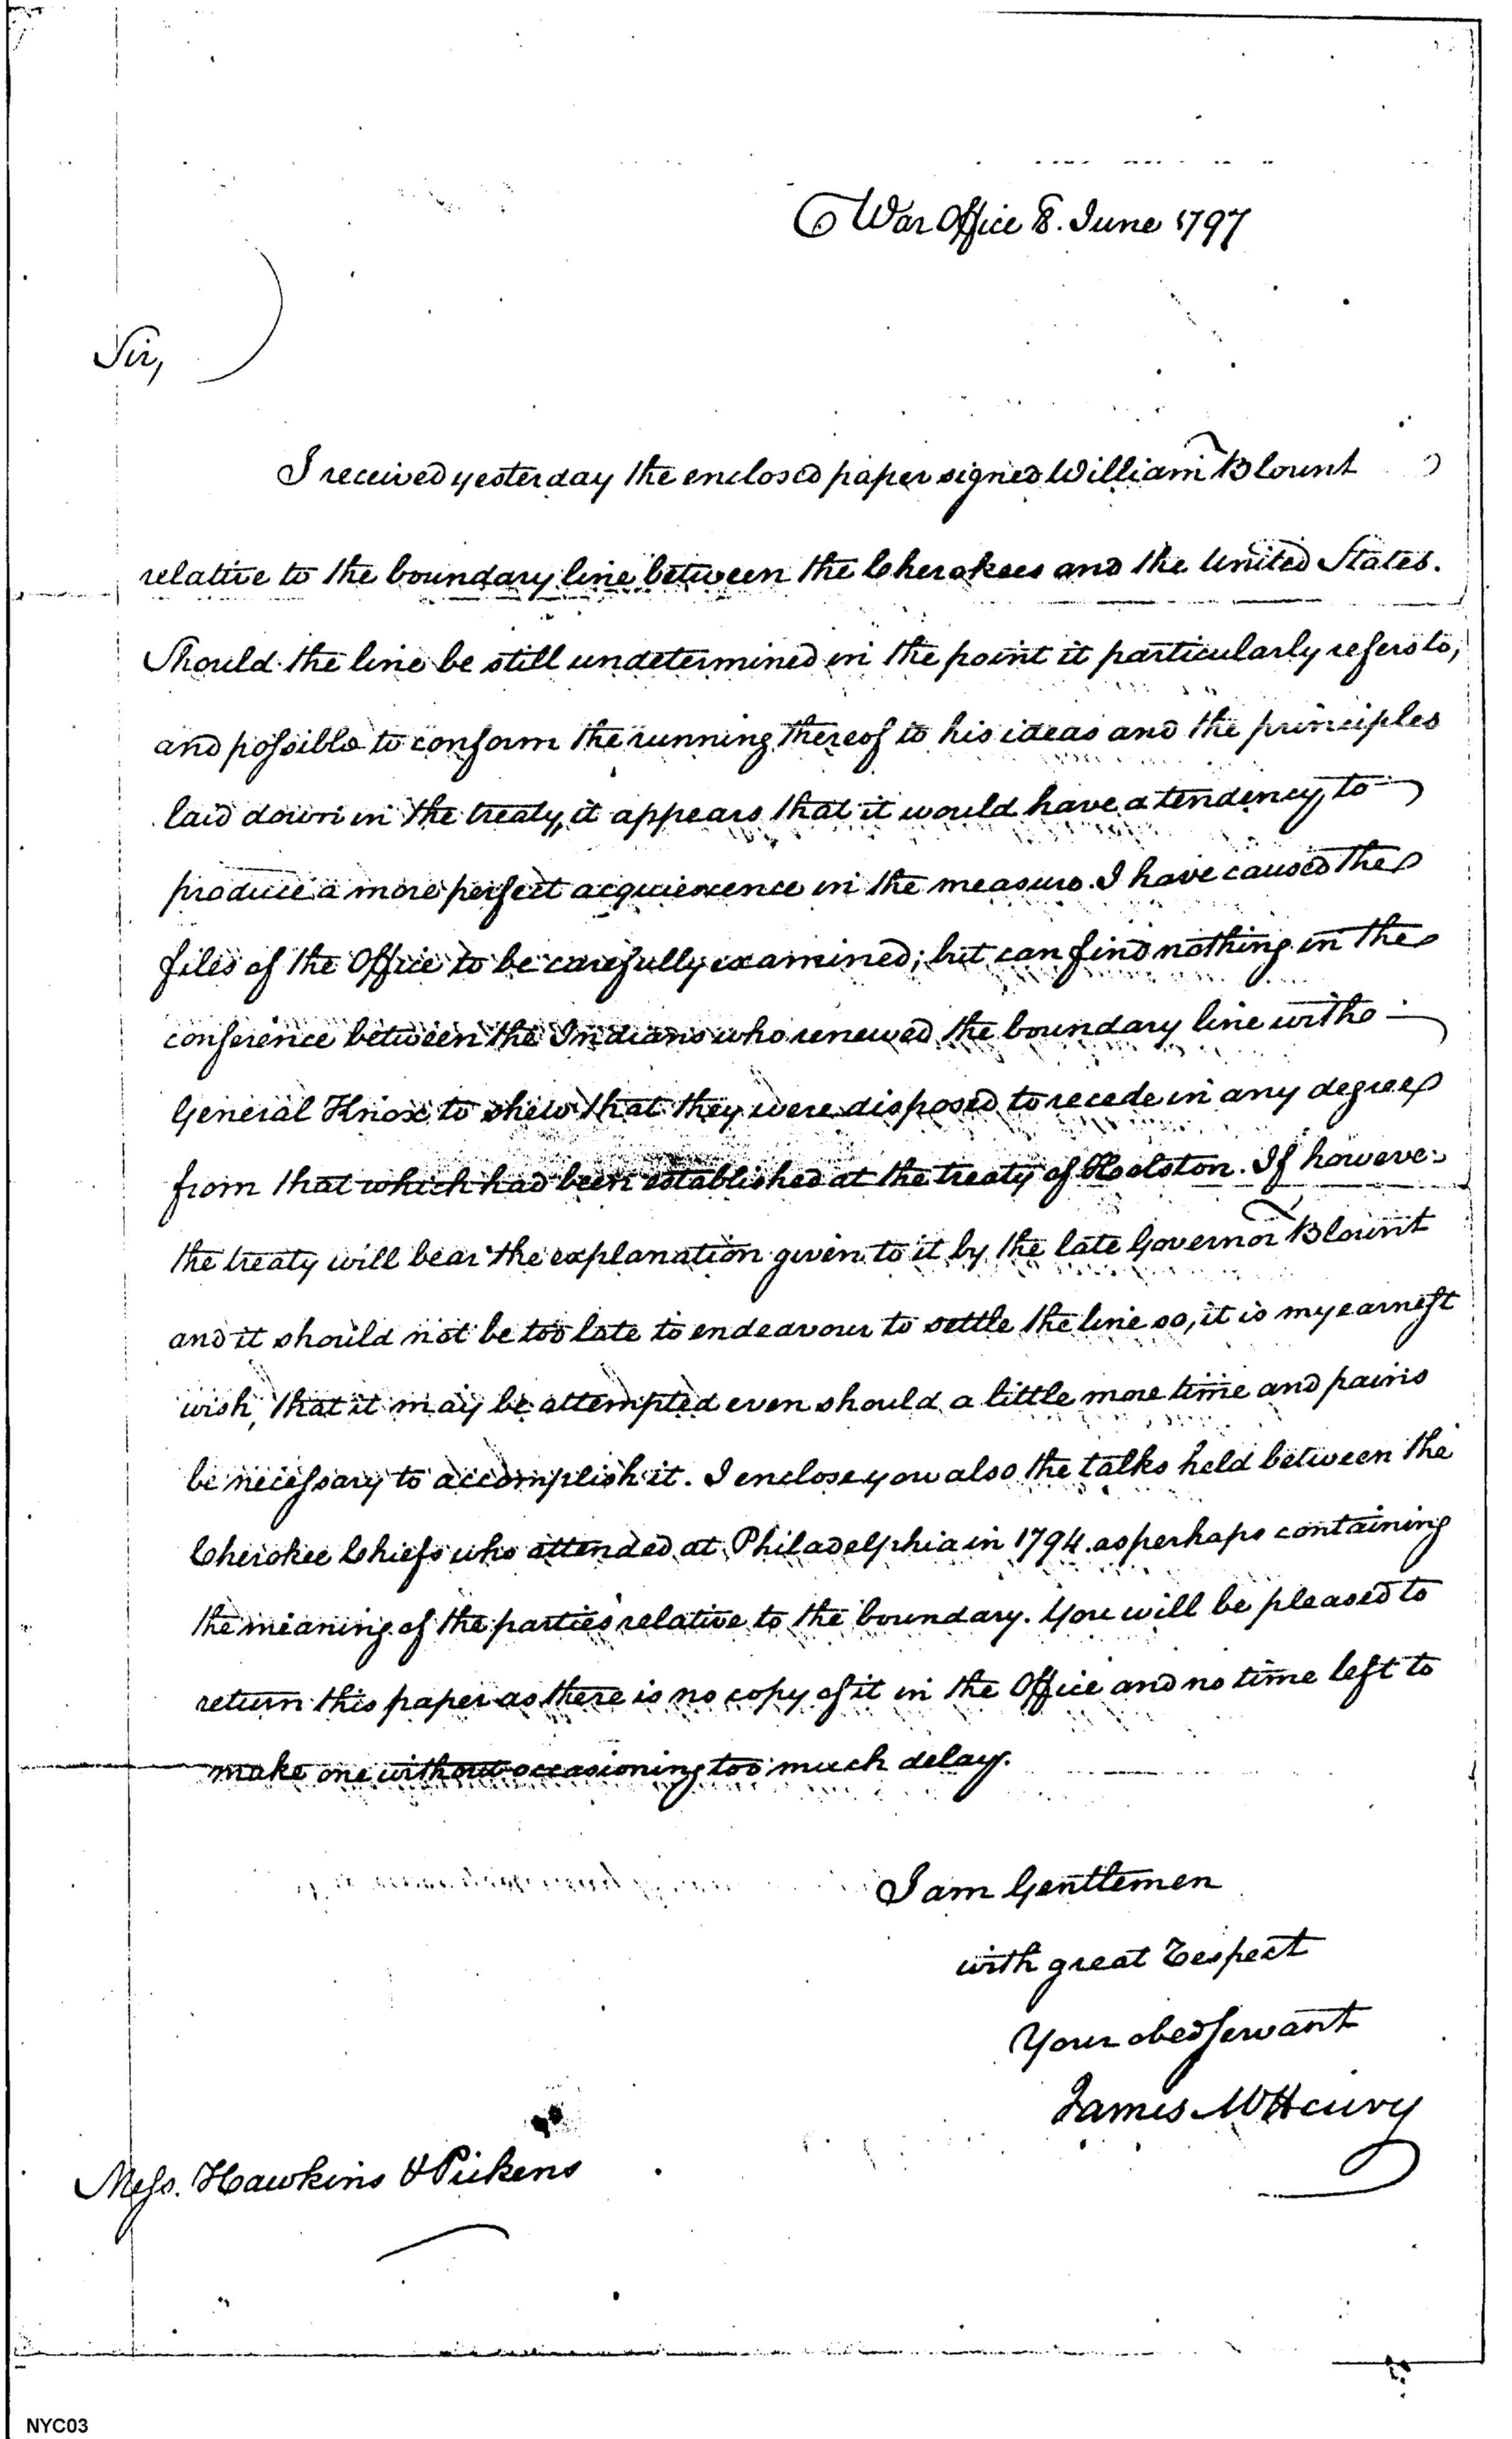 War Office 8. June 1797
Sir,
I received yesterday the enclosed paper signed William Blount
relative to the boundary line between the Cherokees and the United States.
Should the line be still undetermined in the point it particularly refers to,
and possible to conform the running thereof to his ideas and the principles
laid down in the treaty, it appears that it would have a tendency to
produce a more perfect acquiescence in the measure. I have caused the
files of the Office to be carefully examined; but can find nothing in the
conference between the Indians who renewed the boundary line with
General Knox to shew that they were disposed to recede in any degree
from that which had been established at the treaty of Holston. If however
the treaty will bear the explanation given to it by the late Governor Blount
and it should not be too late to endeavour to settle the line so, it is my earnest
wish, that it may be attempted even should a little more time and pains
be necessary to accomplish it. I enclose you also the talks held between the
Cherokee Chiefs who attended at Philadelphia in 1794. as perhaps containing
the meaning of the parties relative to the boundary. You will be pleased to
return this paper as there is no copy of it in the Office and no time left to
make one without occasioning too much delay.
I am Gentlemen
with great Respect
Your obed servant
James McHenry
Mess. Hawkins & Pickens
NYC03